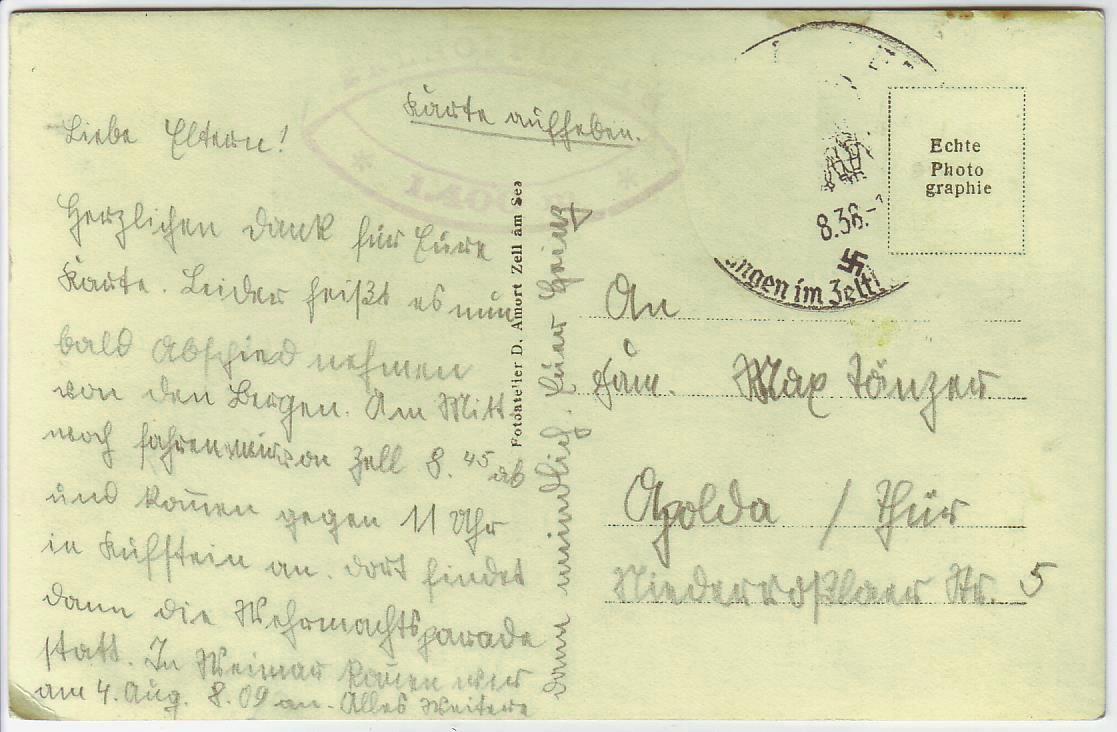 Karte aufheben.
Liebe Eltern!
Herzlichen Dank für Eure
Karte. Leider heißt es nun
bald Abschied nehmen
von den Bergen. Am Mitt-
woch fahren wir von Zell 8.45 ab
und kom̄en gegen 11 Uhr
in Kufstein an. Dort findet
dann die Wehrmachtsparade
statt. In Weimar kom̄en wir
am 4. Aug. 8.09 an. Alles Weitere
dann mündlich. Euer Heinz
Fotoatelier D. Amort Zell am See
LAGER
8.38.-
ngen im Zellt
Echte
Photo
graphie
An
Fam. Max Tänzer
Apolda / Thür
Niederroßlaer Str. 5